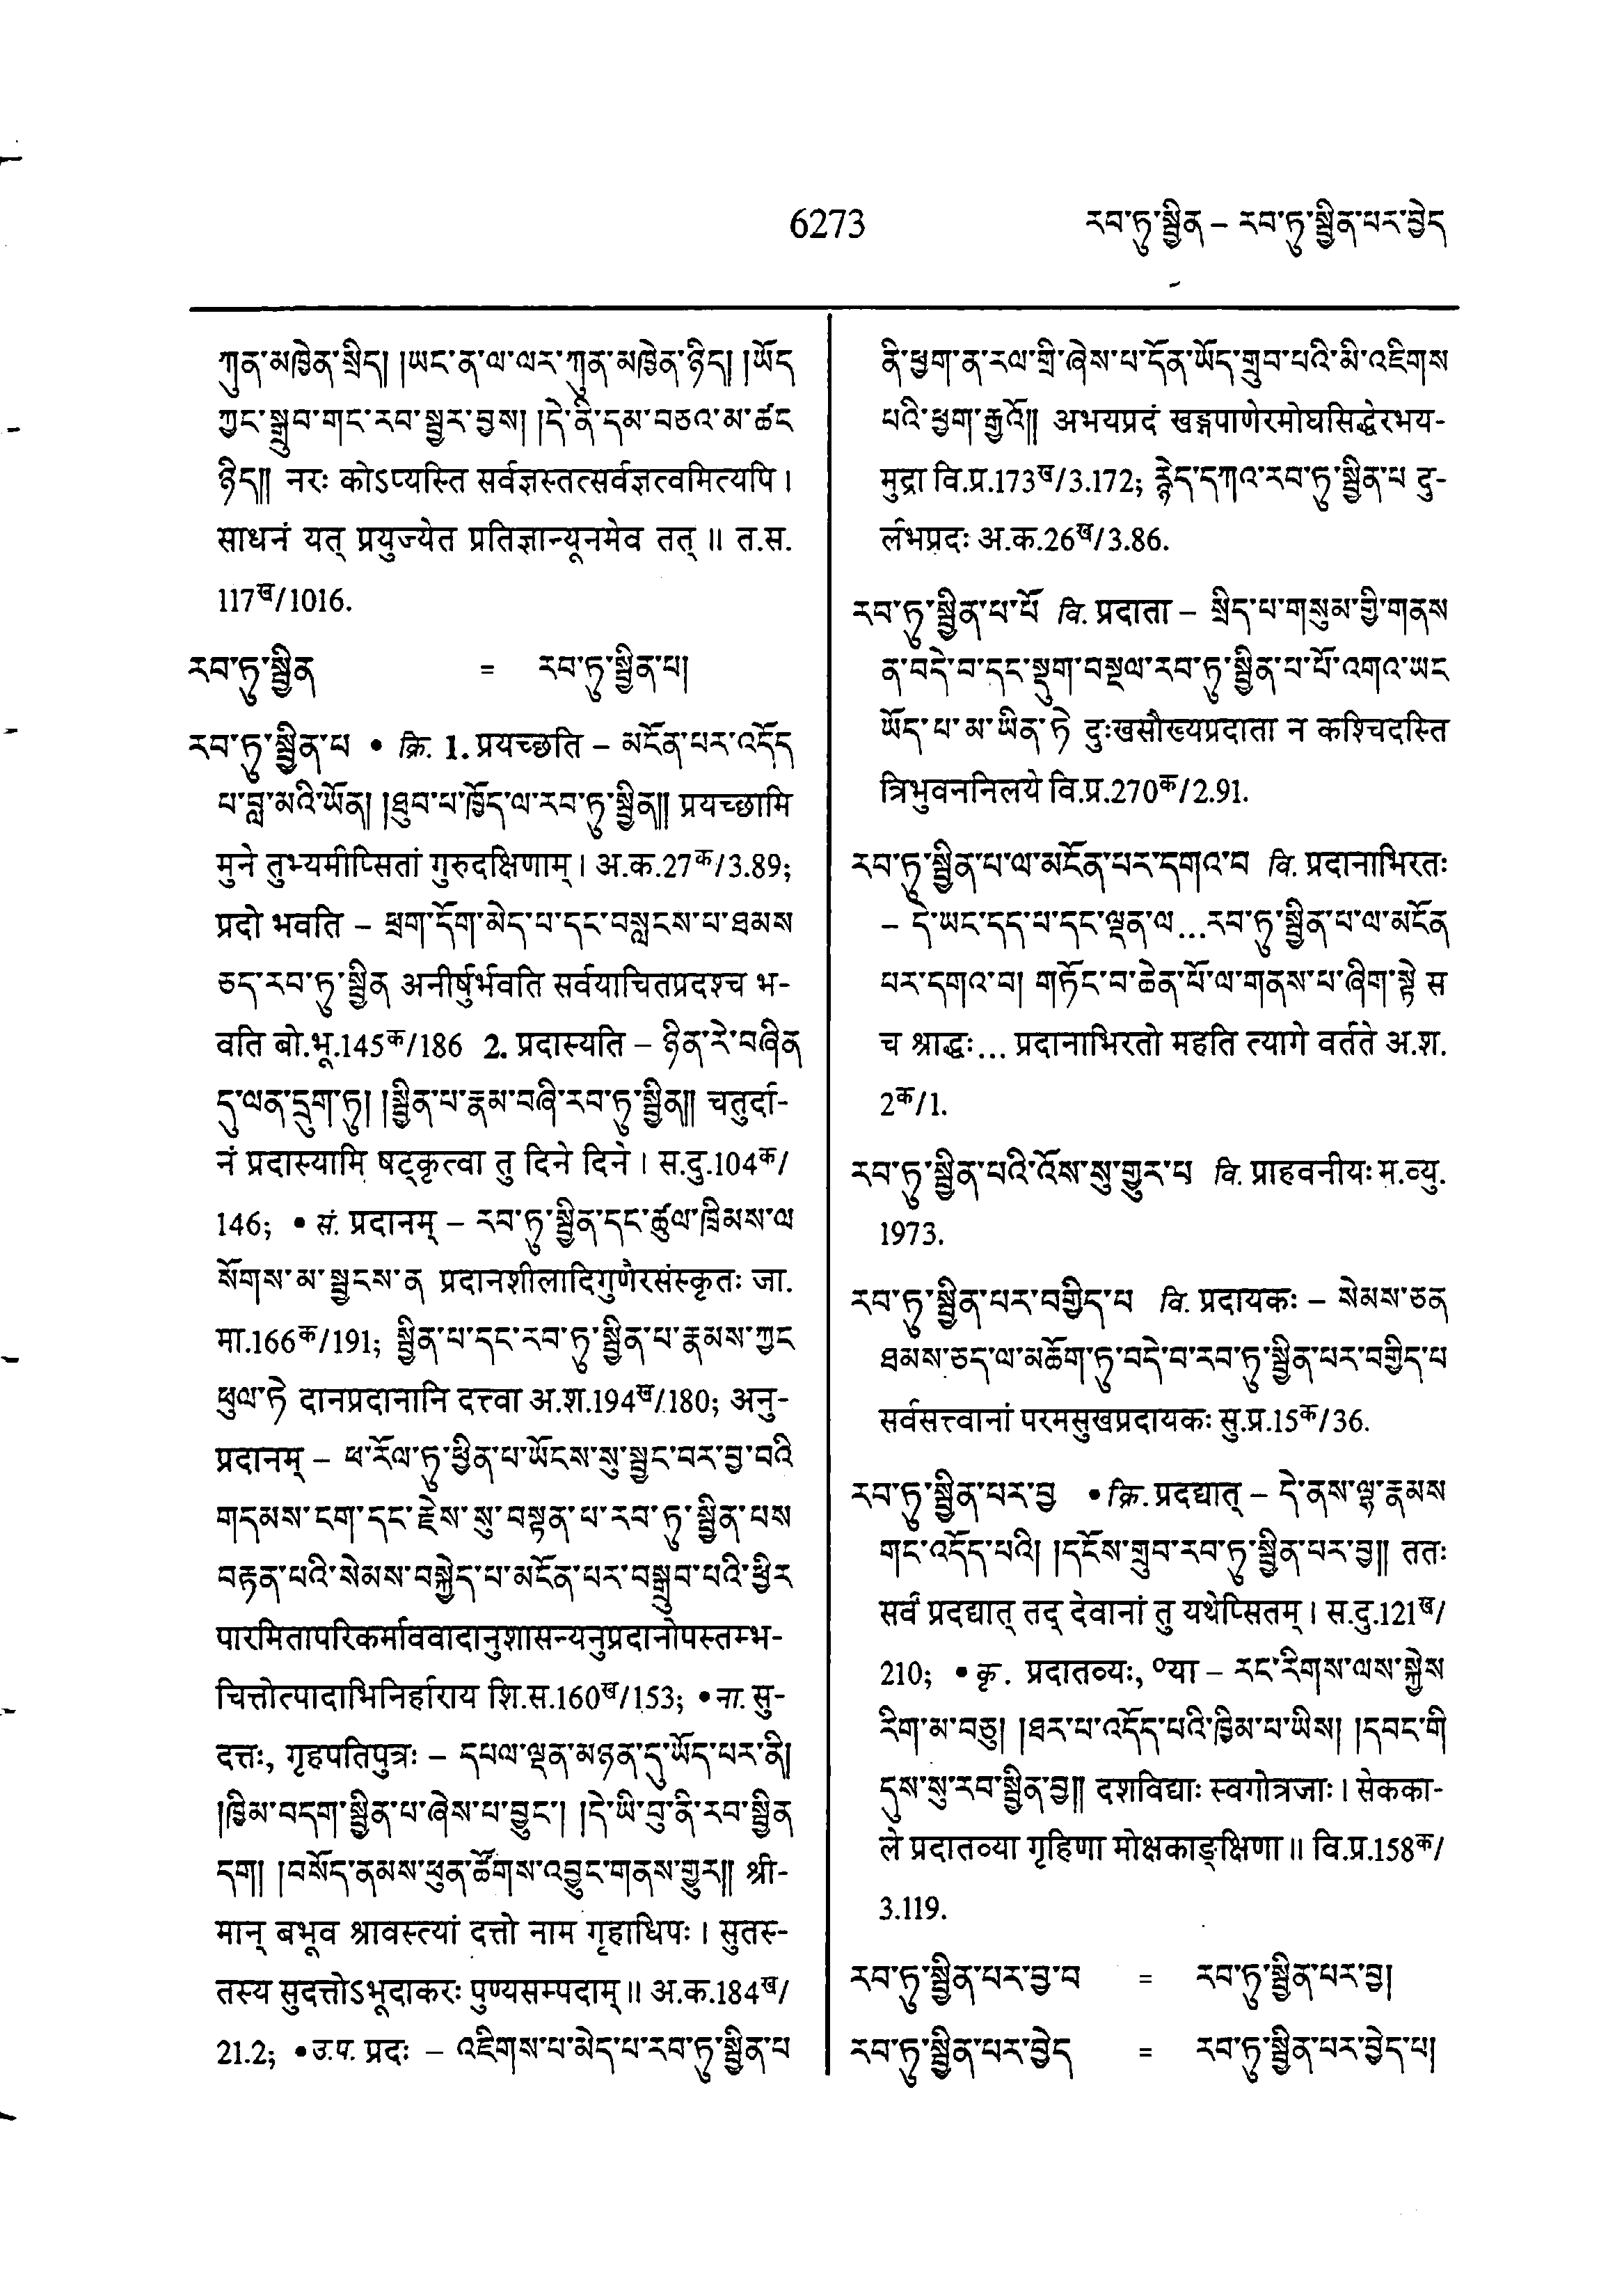 6273
རབ་ཏུ་སྦྱིན – རབ་ཏུ་སྦྱིན་པར་བྱེད
ཀུན་མཁྱེན་སྲིད། །ཡང་ན་ལ་ལར་ཀུན་མཁྱེན་ཉིད། །ཡོད
ཀྱང་སྒྲུབ་གང་རབ་སྦྱར་བྱས། །དེ་ནི་དམ་བཅའ་མ་ཚང
ཉིད།། नरः कोऽप्यस्ति सर्वज्ञस्तत्सर्वज्ञत्वमित्यपि ।
साधनं यत् प्रयुज्येत प्रतिज्ञान्यूनमेव तत् ॥ त.स.
117ख/1016.
རབ་ཏུ་སྦྱིན = རབ་ཏུ་སྦྱིན་པ།
རབ་ཏུ་སྦྱིན་པ • क्रि. 1. प्रयच्छति – མངོན་པར་འདོད
པ་བླ་མའི་ཡོན། །ཐུབ་པ་ཁྱོད་ལ་རབ་ཏུ་སྦྱིན།། प्रयच्छामि
मुने तुभ्यमीप्सितां गुरुदक्षिणाम् । अ.क.27क/3.89;
प्रदो भवति – ཕྲག་དོག་མེད་པ་དང་བསླངས་པ་ཐམས
ཅད་རབ་ཏུ་སྦྱིན अनीर्षुर्भवति सर्वयाचितप्रदश्च भ-
वति बो.भू.145क/186 2. प्रदास्यति – ཉིན་རེ་བཞིན
དུ་ལན་དྲུག་ཏུ། །སྦྱིན་པ་རྣམ་བཞི་རབ་ཏུ་སྦྱིན།། चतुर्दा-
नं प्रदास्यामि षट्कृत्वा तु दिने दिने । स.दु.104क/
146; • सं. प्रदानम् – རབ་ཏུ་སྦྱིན་དང་ཚུལ་ཁྲིམས་ལ
སོགས་མ་སྦྱངས་ན प्रदानशीलादिगुणैरसंस्कृतः जा.
मा.166क/191; སྦྱིན་པ་དང་རབ་ཏུ་སྦྱིན་པ་རྣམས་ཀྱང
ཕུལ་ཏེ दानप्रदानानि दत्त्वा अ.श.194ख/180; अनु-
प्रदानम् – ཕ་རོལ་ཏུ་ཕྱིན་པ་ཡོངས་སུ་སྦྱང་བར་བྱ་བའི
གདམས་ངག་དང་རྗེས་སུ་བསྟན་པ་རབ་ཏུ་སྦྱིན་པས
བརྟན་པའི་སེམས་བསྐྱེད་པ་མངོན་པར་བསྒྲུབ་པའི་ཕྱིར
पारमितापरिकर्माववादानुशासन्यनुप्रदानोपस्तम्भ-
चित्तोत्पादाभिनिर्हाराय शि.स.160ख/153; • ना. सु-
दत्तः, गृहपतिपुत्रः – དཔལ་ལྡན་མཉན་དུ་ཡོད་པར་ནི།
།ཁྱིམ་བདག་སྦྱིན་པ་ཞེས་པ་བྱུང་། །དེ་ཡི་བུ་ནི་རབ་སྦྱིན
དག། །བསོད་ནམས་ཕུན་ཚོགས་འབྱུང་གནས་གྱུར།། श्री-
मान् बभूव श्रावस्त्यां दत्तो नाम गृहाधिपः । सुतस्-
तस्य सुदत्तोऽभूदाकरः पुण्यसम्पदाम् ॥ अ.क.184ख/
21.2; • उ.प. प्रदः – འཇིགས་པ་མེད་པ་རབ་ཏུ་སྦྱིན་པ
ནི་ཕྱག་ན་རལ་གྲི་ཞེས་པ་དོན་ཡོད་གྲུབ་པའི་མི་འཇིགས
པའི་ཕྱག་རྒྱའོ།། अभयप्रदं खड्गपाणेरमोघसिद्धेरभय-
मुद्रा वि.प्र.173ख/3.172; རྙེད་དཀའ་རབ་ཏུ་སྦྱིན་པ दु-
र्लभप्रदः अ.क.26ख/3.86.
རབ་ཏུ་སྦྱིན་པ་པོ वि. प्रदाता – སྲིད་པ་གསུམ་གྱི་གནས
ན་བདེ་བ་དང་སྡུག་བསྔལ་རབ་ཏུ་སྦྱིན་པ་པོ་འགའ་ཡང
ཡོད་པ་མ་ཡིན་ཏེ दुःखसौख्यप्रदाता न कश्चिदस्ति
त्रिभुवननिलये वि.प्र.270क/2.91.
རབ་ཏུ་སྦྱིན་པ་ལ་མངོན་པར་དགའ་བ वि. प्रदानाभिरतः
– དེ་ཡང་དད་པ་དང་ལྡན་ལ...རབ་ཏུ་སྦྱིན་པ་ལ་མངོན
པར་དགའ་བ། གཏོང་བ་ཆེན་པོ་ལ་གནས་པ་ཞིག་སྟེ स
च श्राद्धः... प्रदानाभिरतो महति त्यागे वर्तते अ.श.
2क/1.
རབ་ཏུ་སྦྱིན་པའི་འོས་སུ་གྱུར་པ वि. प्राहवनीयः म.व्यु.
1973.
རབ་ཏུ་སྦྱིན་པར་བགྱིད་པ वि. प्रदायकः – སེམས་ཅན
ཐམས་ཅད་ལ་མཆོག་ཏུ་བདེ་བ་རབ་ཏུ་སྦྱིན་པར་བགྱིད་པ
सर्वसत्त्वानां परमसुखप्रदायकः सु.प्र.15क/36.
རབ་ཏུ་སྦྱིན་པར་བྱ • क्रि. प्रदद्यात् – དེ་ནས་ལྷ་རྣམས
གང་འདོད་པའི། །དངོས་གྲུབ་རབ་ཏུ་སྦྱིན་པར་བྱ།། ततः
सर्वं प्रदद्यात् तद् देवानां तु यथेप्सितम् । स.दु.121ख/
210; • कृ. प्रदातव्यः, ०या – རང་རིགས་ལས་སྐྱེས
རིག་མ་བཅུ། །ཐར་པ་འདོད་པའི་ཁྱིམ་པ་ཡིས། །དབང་གི
དུས་སུ་རབ་སྦྱིན་བྱ།། दशविद्याः स्वगोत्रजाः । सेकका-
ले प्रदातव्या गृहिणा मोक्षकाङ्क्षिणा ॥ वि.प्र.158क/
3.119.
རབ་ཏུ་སྦྱིན་པར་བྱ་བ = རབ་ཏུ་སྦྱིན་པར་བྱ།
རབ་ཏུ་སྦྱིན་པར་བྱེད = རབ་ཏུ་སྦྱིན་པར་བྱེད་པ།